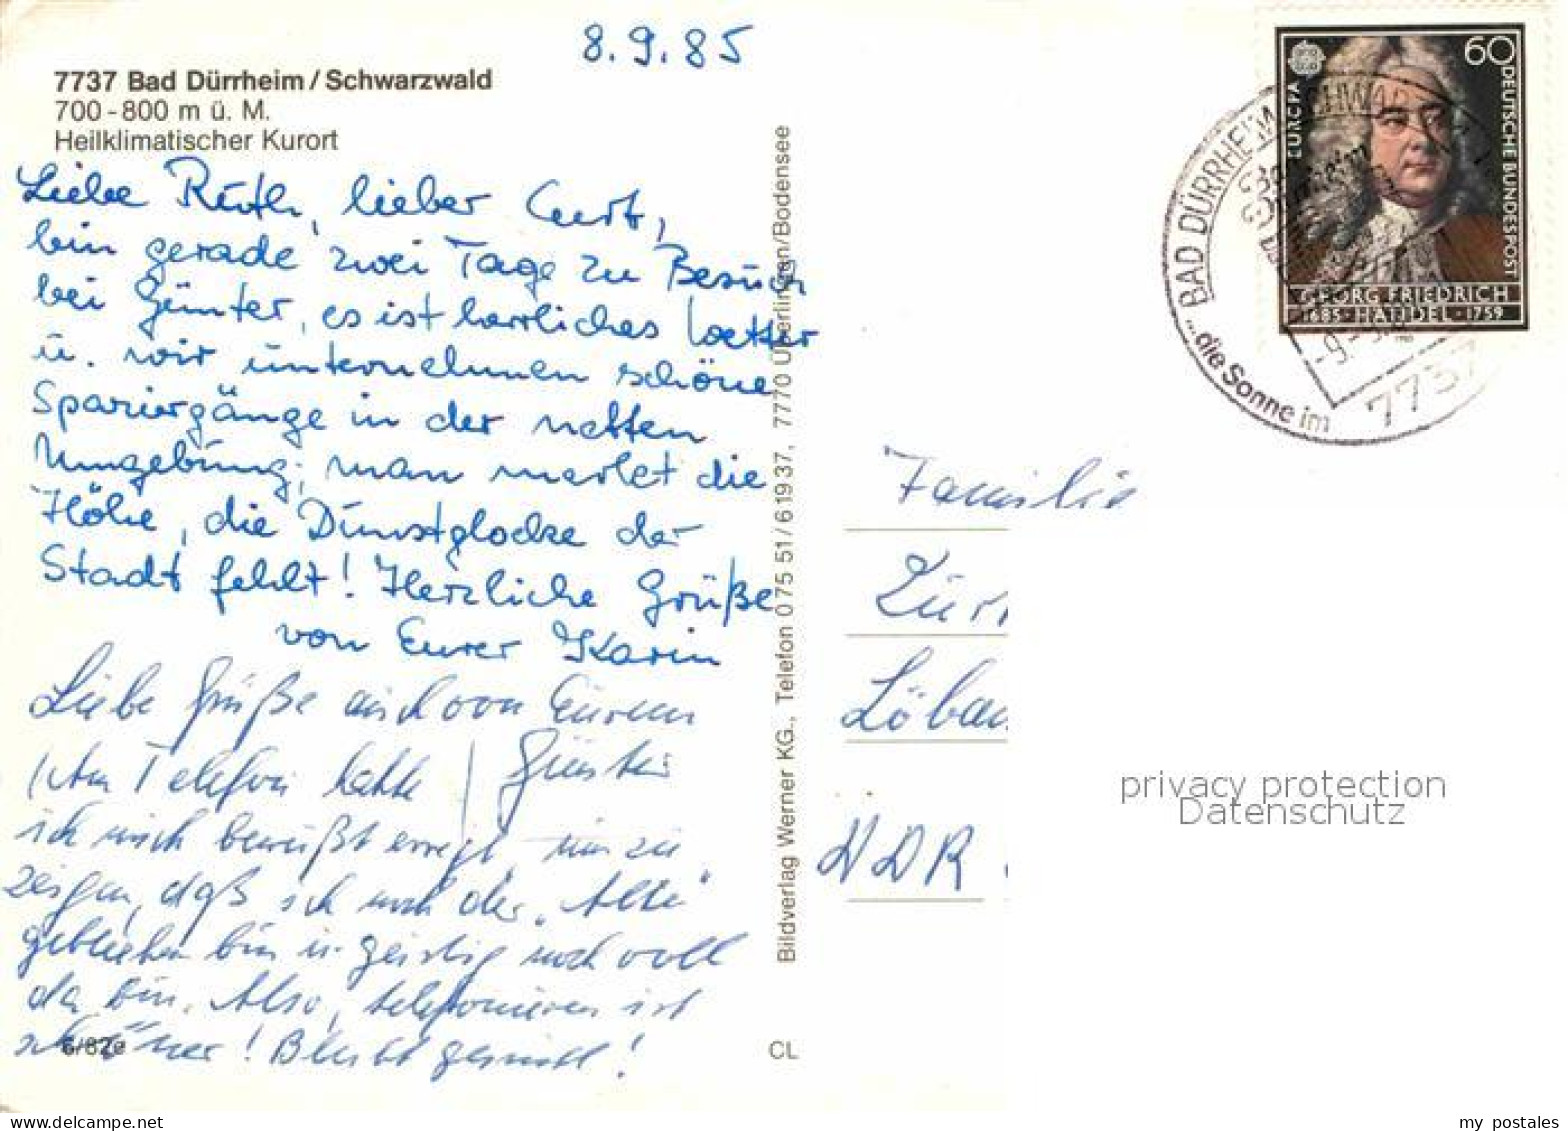 8.9.85
7737 Bad Dürrheim / Schwarzwald
700-800 m ü. M.
Heilklimatischer Kurort
Liebe Ruth, lieber Curt,
bin gerade zwei Tage zu Besuch
bei Günter, es ist herrliches Wetter
u. wir unternehmen schöne
Spaziergänge in der netten
Umgebung; man merkt die
Höhe, die Dunstglocke der
Stadt fehlt! Herzliche Grüße
von Eurer Karin
Liebe Grüße auch von Eurem
Günter
(Am Telefon hatte
ich mich bewußt erregt, um zu
zeigen, daß ich noch der „Alte"
geblieben bin u. geistig noch voll
da bin. Also, telefonieren ist
schöner! Bleibt gesund!
6/82e
CL
Bildverlag Werner KG., Telefon 0 75 51/6 19 37, 7770 Überlingen/Bodensee
60
EUROPA
DEUTSCHE BUNDESPOST
GEORG FRIEDRICH
1685 · HÄNDEL · 1759
BAD DÜRRHEIM
...die Sonne im
7737
Familie
Löbau
DDR
privacy protection
Datenschutz
my postales